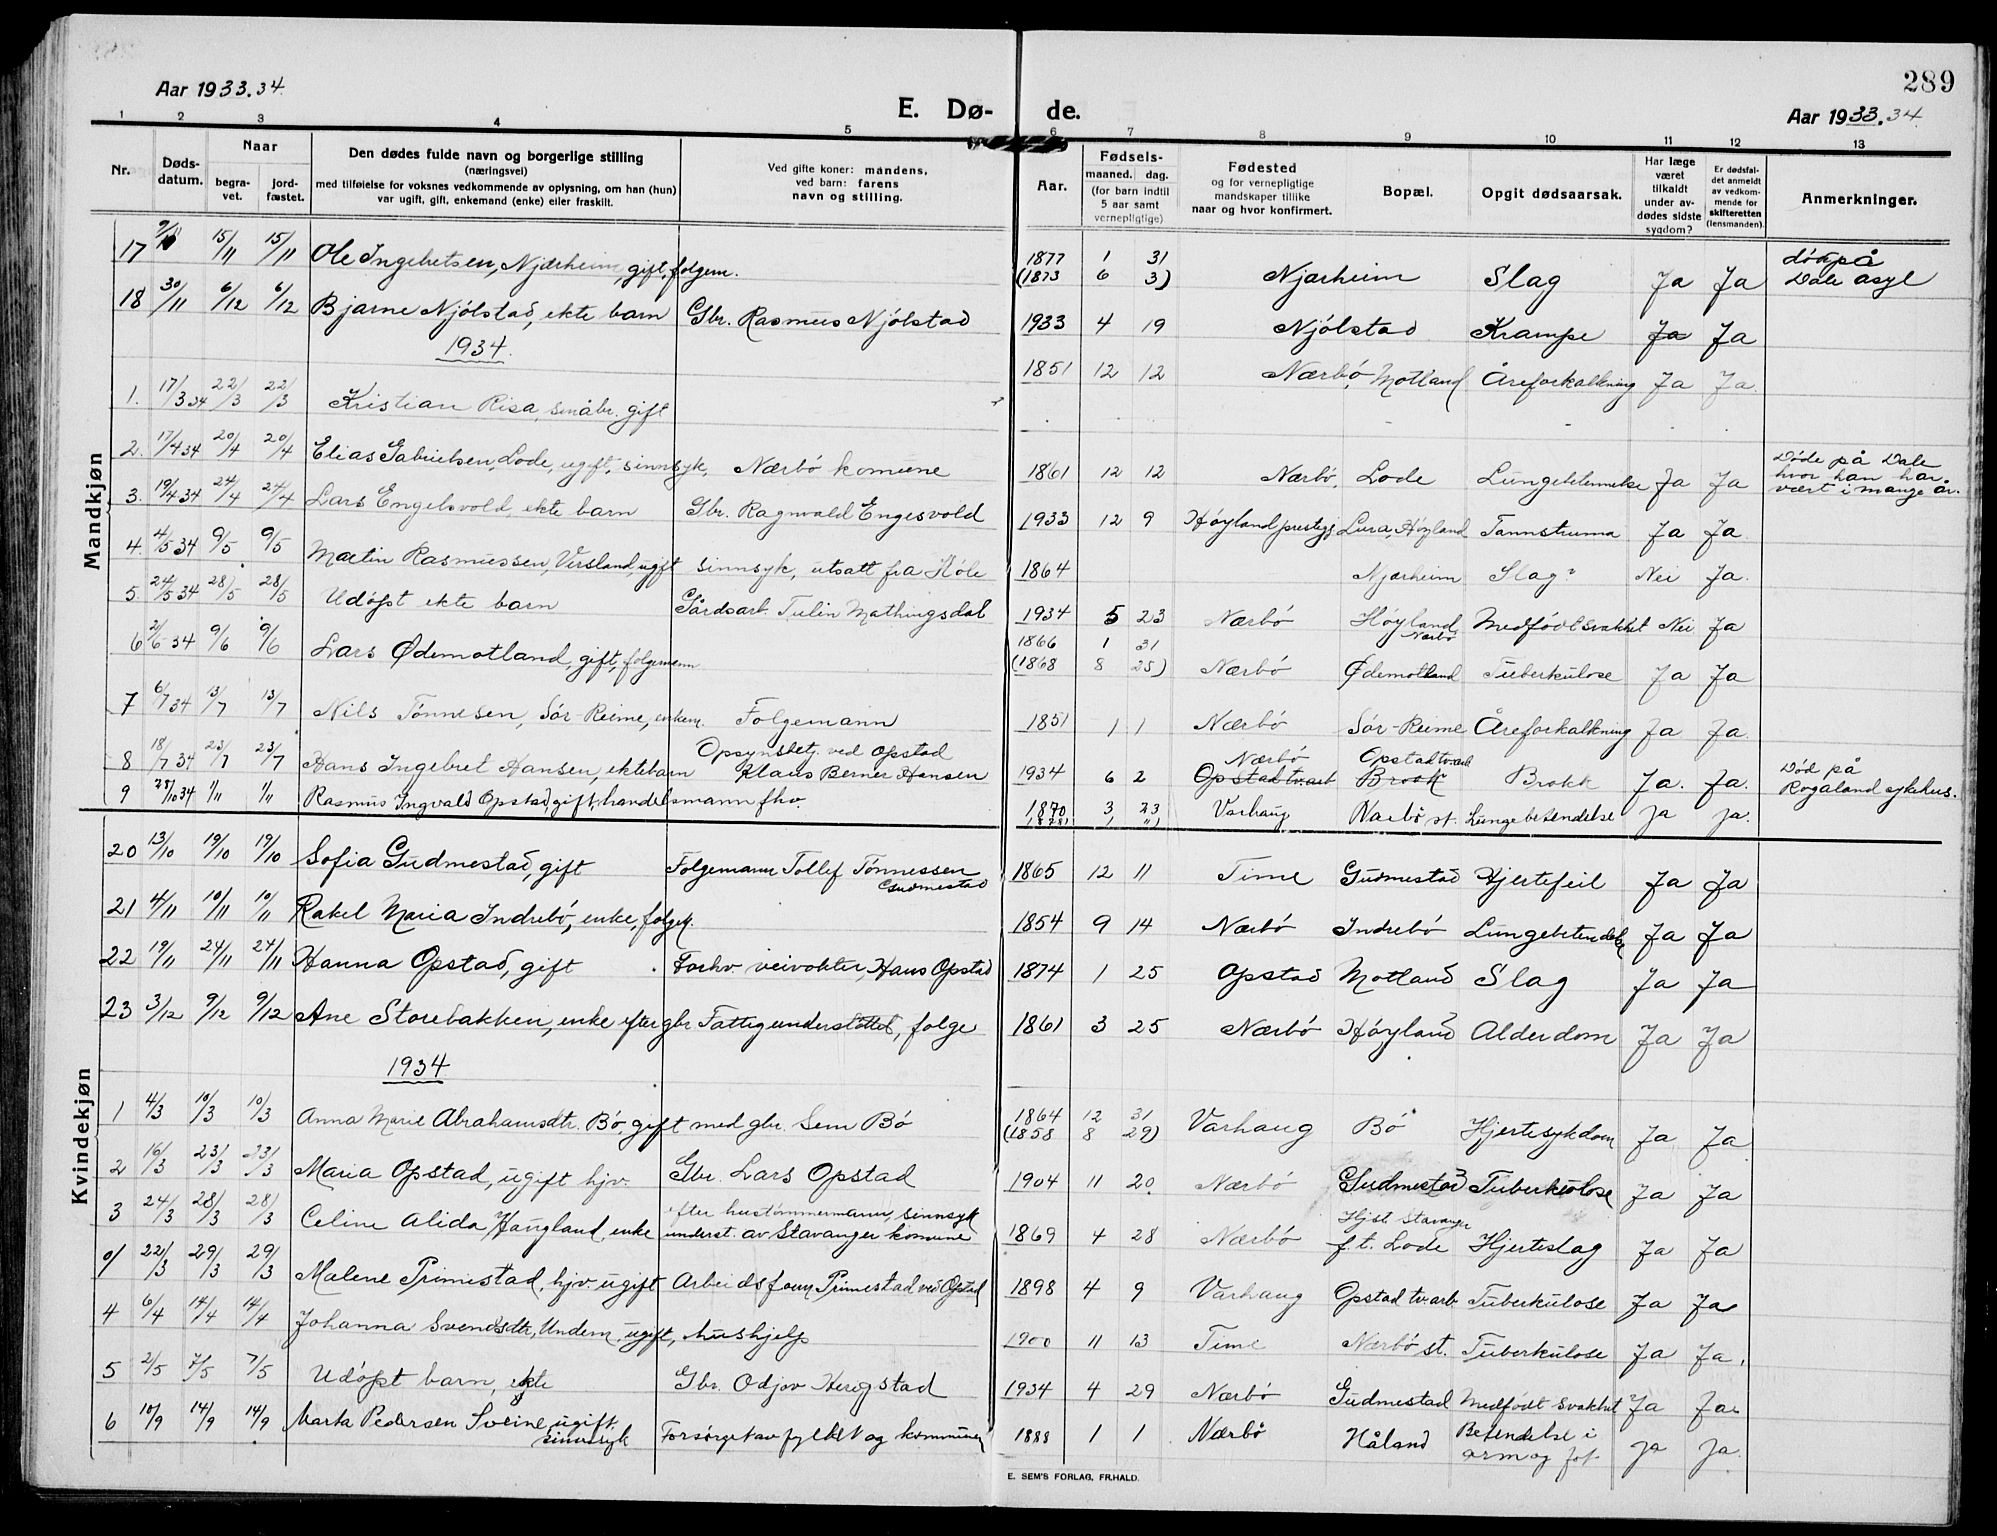 289
Aar 1933.34.
E. Dø-de.
Aar 1933.34.
1 2 3 4 5 6 7 8 9 10 11 12 13
Nr.
Døds-datum.
Naar
begra-vet.
jord-fæstet.
Den dødes fulde navn og borgerlige stilling
(næringsvei)
med tilføielse for voksnes vedkommende av oplysning, om han (hun)
var ugift, gift, enkemand (enke) eller fraskilt.
Ved gifte koner: mandens,
ved barn: farens
navn og stilling.
Aar.
Fødsels-
maaned. dag.
(for barn indtil
5 aar samt
vernepligtige)
Fødested
og for vernepligtige
mandskaper tillike
naar og hvor konfirmert.
Bopæl.
Opgit dødsaarsak.
Har læge
været
tilkaldt
under av-
dødes sidste
sygdom?
Er dødsfal-
det anmeldt
av vedkom-
mende for
skifteretten
(lensmanden).
Anmerkninger.
Mandkjøn
17 15/11 15/11 Ole Ingebretsen, Njærheim, gift, folgem. 1877 1 31 (1873 6 3) Njærheim Slag Ja Ja død på Dale asyl
18 30/11 6/12 6/12 Bjarne Njølstad, ekte barn Gbr. Rasmus Njølstad 1933 4 19 Njølstad Krampe Ja Ja
1934.
1. 17/3 34 22/3 22/3 Kristian Risa, småbr. gift 1851 12 12 Nærbø, Motland Åreforkalkning Ja Ja.
2. 17/4 34 20/4 20/4 Elias Gabrielsen, Lode, ugift, sinnsyk, Nærbø komune 1861 12 12 Nærbø, Lode Lungebetennelse Ja Ja Døde på Dale hvor han har vært i mange år.
3. 19/4 34 24/4 24/4 Lars Engelsvold, ekte barn Gbr. Ragnvald Engesvold 1933 12 9 Høyland prestegj Lura, Høyland Tannstruma Ja Ja
4. 4/5 34 9/5 9/5 Martin Rasmussen, Versland, ugift sinnsyk, utsatt fra Høle 1864 Njærheim Slag? Nei Ja.
5. 24/5 34 28/5 28/5 Udøpt ekte barn Gårdsarb. Tulin Mathingsdal 1934 5 23 Nærbø Høyland Nærbø Medfødt svakhet Nei Ja
6 2/6 34 9/6 9/6 Lars Ødemotland, gift, folgemenn 1866 1 31 (1868 8 25) Nærbø Ødemotland Tuberkulose Ja Ja
7 6/7 34 13/7 13/7 Nils Tønnesen, Sør-Reime, enkem. Folgemann 1851 1 1 Nærbø Sør-Reime Åreforkalkning Ja Ja.
8 18/7 34 23/7 23/7 Hans Ingebret Hansen, ekte barn Opsynsbetj. ved Opstad Klaus Berner Hansen 1934 6 2 Nærbø Opstad tv.arb Opstad tv.arb Brokk Brokk Ja. Ja.
9 28/10 34 1/11 1/11 Rasmus Ingvald Opstad, gift, handelsmann fhv. 1870 3 23 Varhaug Nærbø st. Lungebetendelse Ja Ja. Død på Rogaland sykehus.
Kvindekjøn
20 13/10 19/10 19/10 Sofia Gudmestad, gift Folgemann Tollef Tønnessen Gudmestad 1865 12 11 Time Gudmestad Hjertefeil Ja Ja
21 4/11 10/11 10/11 Rakel Maria Indrebø, enke, folgek. 1854 9 14 Nærbø Indrebø Lungebetendelse Ja Ja
22 19/11 24/11 24/11 Hanna Opstad, gift Forhv veivokter, Hans Opstad 1874 1 25 Opstad Motland Slag Ja Ja
23 3/12 9/12 9/12 Ane Storebakken, enke efter gbr Fattigunderstøttet, folge 1861 3 25 Nærbø Høyland Alderdom Ja Ja
1934
1 4/3 10/3 10/3 Anna Marie Abrahamsdtr. Bø, gift med gbr. Sem Bø 1864 12 31 (1858 8 29) Varhaug Bø Hjertesykdom Ja Ja
2 16/3 23/3 23/3 Maria Opstad, ugift hjv. Gbr. Lars Opstad 1904 11 20 Nærbø Gudmestad Tuberkulose Ja Ja
3 24/3 28/3 28/3 Celine Alida Haugland, enke efter hustømmermann, sinnsyk underst. av Stavanger komune 1869 4 28 Nærbø Hjst. Stavanger f.t. Lode Hjerteslag Ja Ja
22/3 29/3 29/3 Malene Primestad, hjv. ugift Arbeidsform Primestad ved Opstad 1898 4 9 Varhaug Opstad tv.arb Tuberkulose Ja Ja
4 6/4 14/4 14/4 Johanna Svendsdtr, Undem, ugift, hushjelp 1900 11 13 Time Nærbø st. Tuberkulose Ja Ja.
5 2/5 7/5 7/5 Udøpt barn, ekte Gbr. Odjov Herigstad 1934 4 29 Nærbø Gudmestad Medfødt svakhet Ja Ja
6 10/9 14/9 14/9 Marta Pedersen Sveine, ugift, sinnssyk Forsørget av fylket og kommunen 1888 1 1 Nærbø Håland Betendelse i arm og fot. Ja Ja.
E. SEM'S FORLAG, FR.HALD.